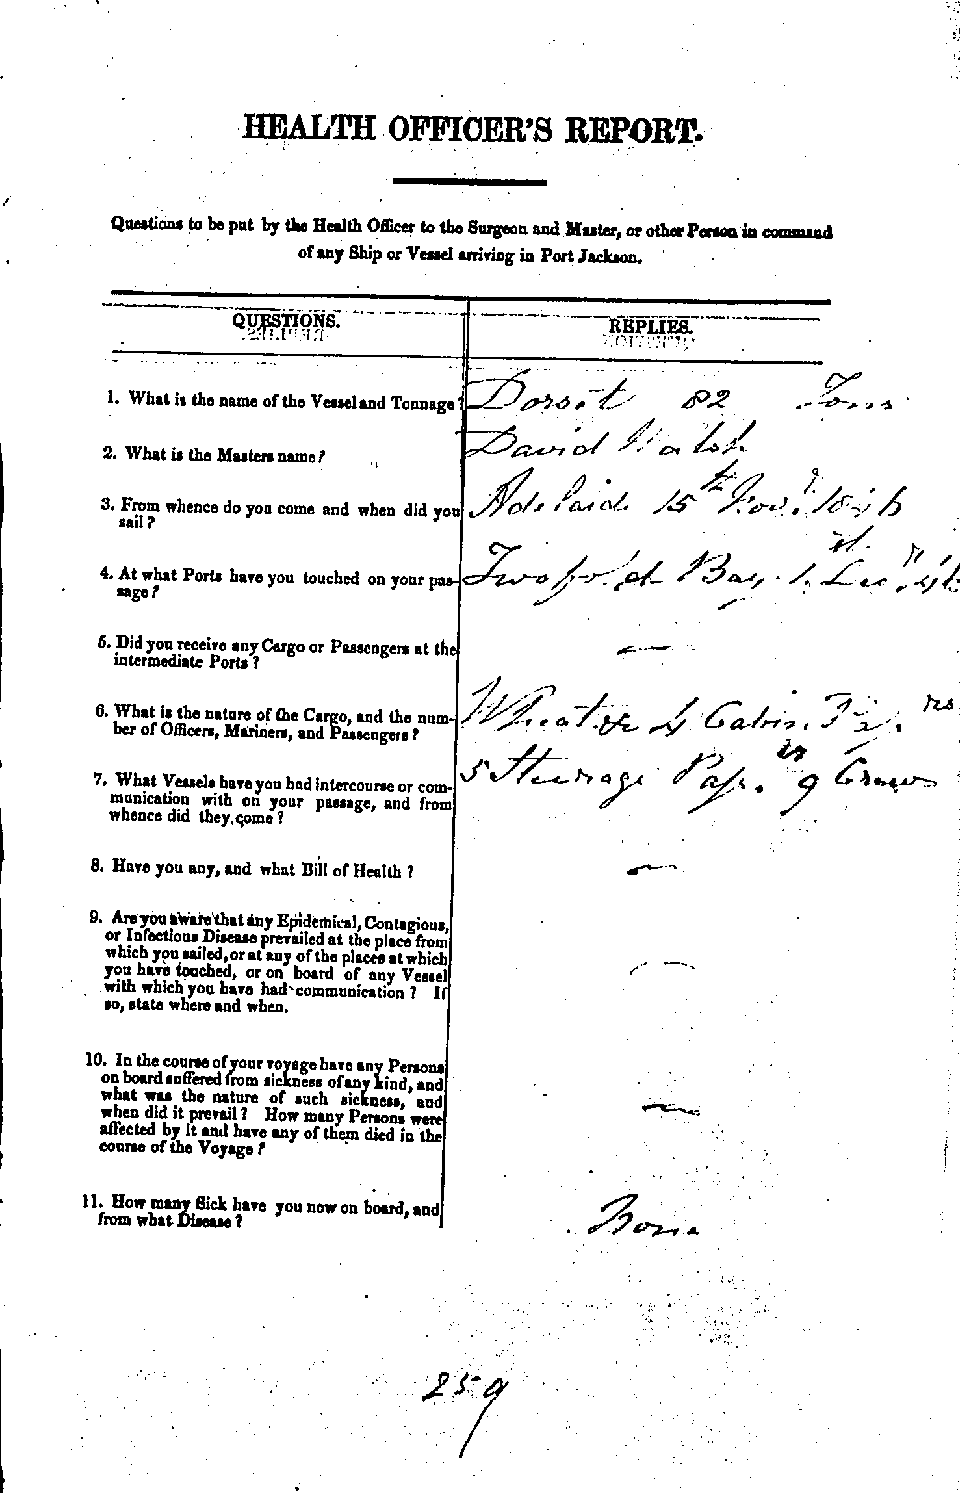 HEALTH OFFICER'S REPORT.
Questions to be put by the Health Officer to the Surgeon and Master, or other Person in command
of any Ship or Vessel arriving in Port Jackson.
QUESTIONS.
REPLIES.
1. What is the name of the Vessel and Tonnage?
Dorset 82 Tons
2. What is the Masters name?
David Walsh
3. From whence do you come and when did you
sail?
Adelaide 15th Novr. 1846
4. At what Ports have you touched on your pas-
sage?
Twofold Bay 1st Decr. '46
5. Did you receive any Cargo or Passengers at the
intermediate Ports?
—
6. What is the nature of the Cargo, and the num-
ber of Officers, Mariners, and Passengers?
Wheat &c 4 Cabin
5 Steerage Passrs 9 Crew
7. What Vessels have you had intercourse or com-
munication with on your passage, and from
whence did they come?
8. Have you any, and what Bill of Health?
—
9. Are you aware that any Epidemical, Contagious,
or Infectious Disease prevailed at the place from
which you sailed, or at any of the places at which
you have touched, or on board of any Vessel
with which you have had communication? If
so, state where and when.
—
10. In the course of your voyage have any Persons
on board suffered from sickness of any kind, and
what was the nature of such sickness, and
when did it prevail? How many Persons were
affected by it and have any of them died in the
course of the Voyage?
—
11. How many Sick have you now on board, and
from what Disease?
None
259